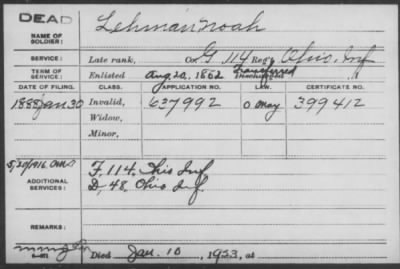 DEAD
NAME OF SOLDIER: Lehman Noah
SERVICE: Late rank, Co. G 114 Reg't Ohio Inf
TERM OF SERVICE: Enlisted Aug. 20, 1862 Transferred
DATE OF FILING. CLASS. APPLICATION NO. LAW. CERTIFICATE NO.
1888 Jan 30 Invalid, 637992 May 399412
Widow,
Minor,
5/20/1916
ADDITIONAL SERVICES: F, 114, Ohio Inf
D, 48, Ohio Inf.
REMARKS:
Died Jan. 10, 1923, at